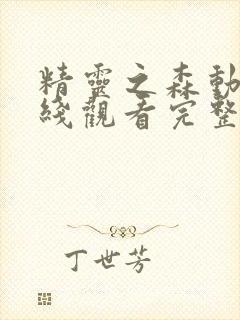 精靈之森動
綫觀看完整
丁世芳